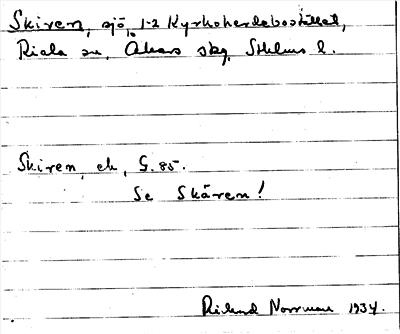 Skiren, sjö, 1-2 Kyrkoherdebostället,
Riala sn, Åkers skg, Sthlms l.
Skiren, ek, G. 85.
Se Skären!
Rickard Norrman 1934.